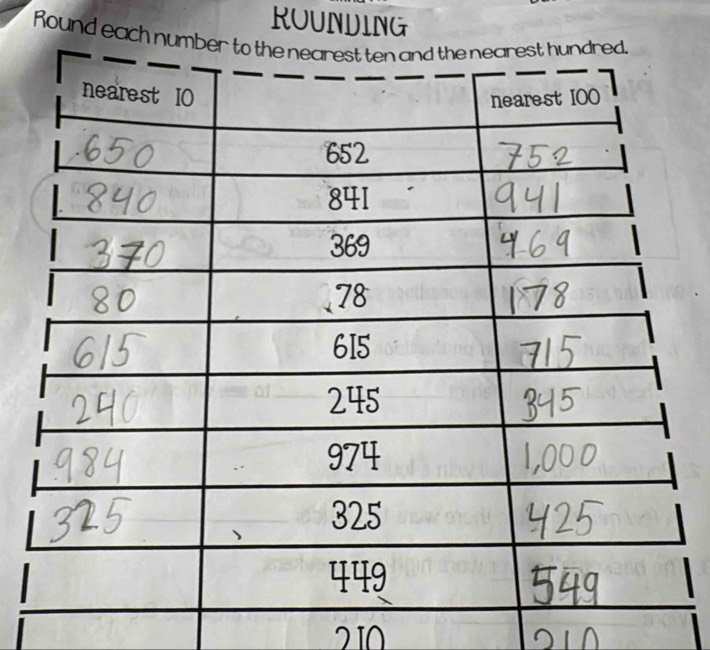 ROUNDING
Round each number to the nearest ten and the nearest hundred.
nearest 10 nearest 100
650 652 752
840 841 941
370 369 469
80 78 178
615 615 715
240 245 345
984 974 1,000
325 325 425
449 549
210 210